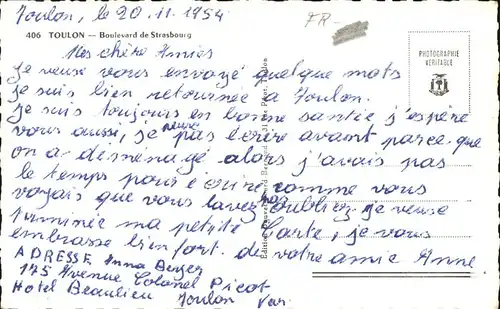 Toulon, le 20.11.1954
FR-
406 TOULON — Boulevard de Strasbourg
PHOTOGRAPHIE
VÉRITABLE
Mes chère Amies
Je veuse vous envoyé quelque mots
je suis bien retournée a Toulon.
Je suis toujours en bonne santie j'espère
vous aussi, je neuse pas écrire avant parce que
on a déménagé alors j'avais pas
le temps pour écrire comme vous
voyais que vous lavez pas oubliez je veuse
terminée ma petite Carte, je vous
embrasse bien fort. de votre amie Anne
ADRESSE Anna Berger
175 Avenue Colonel Picot
Hotel Beaulieu Toulon Var